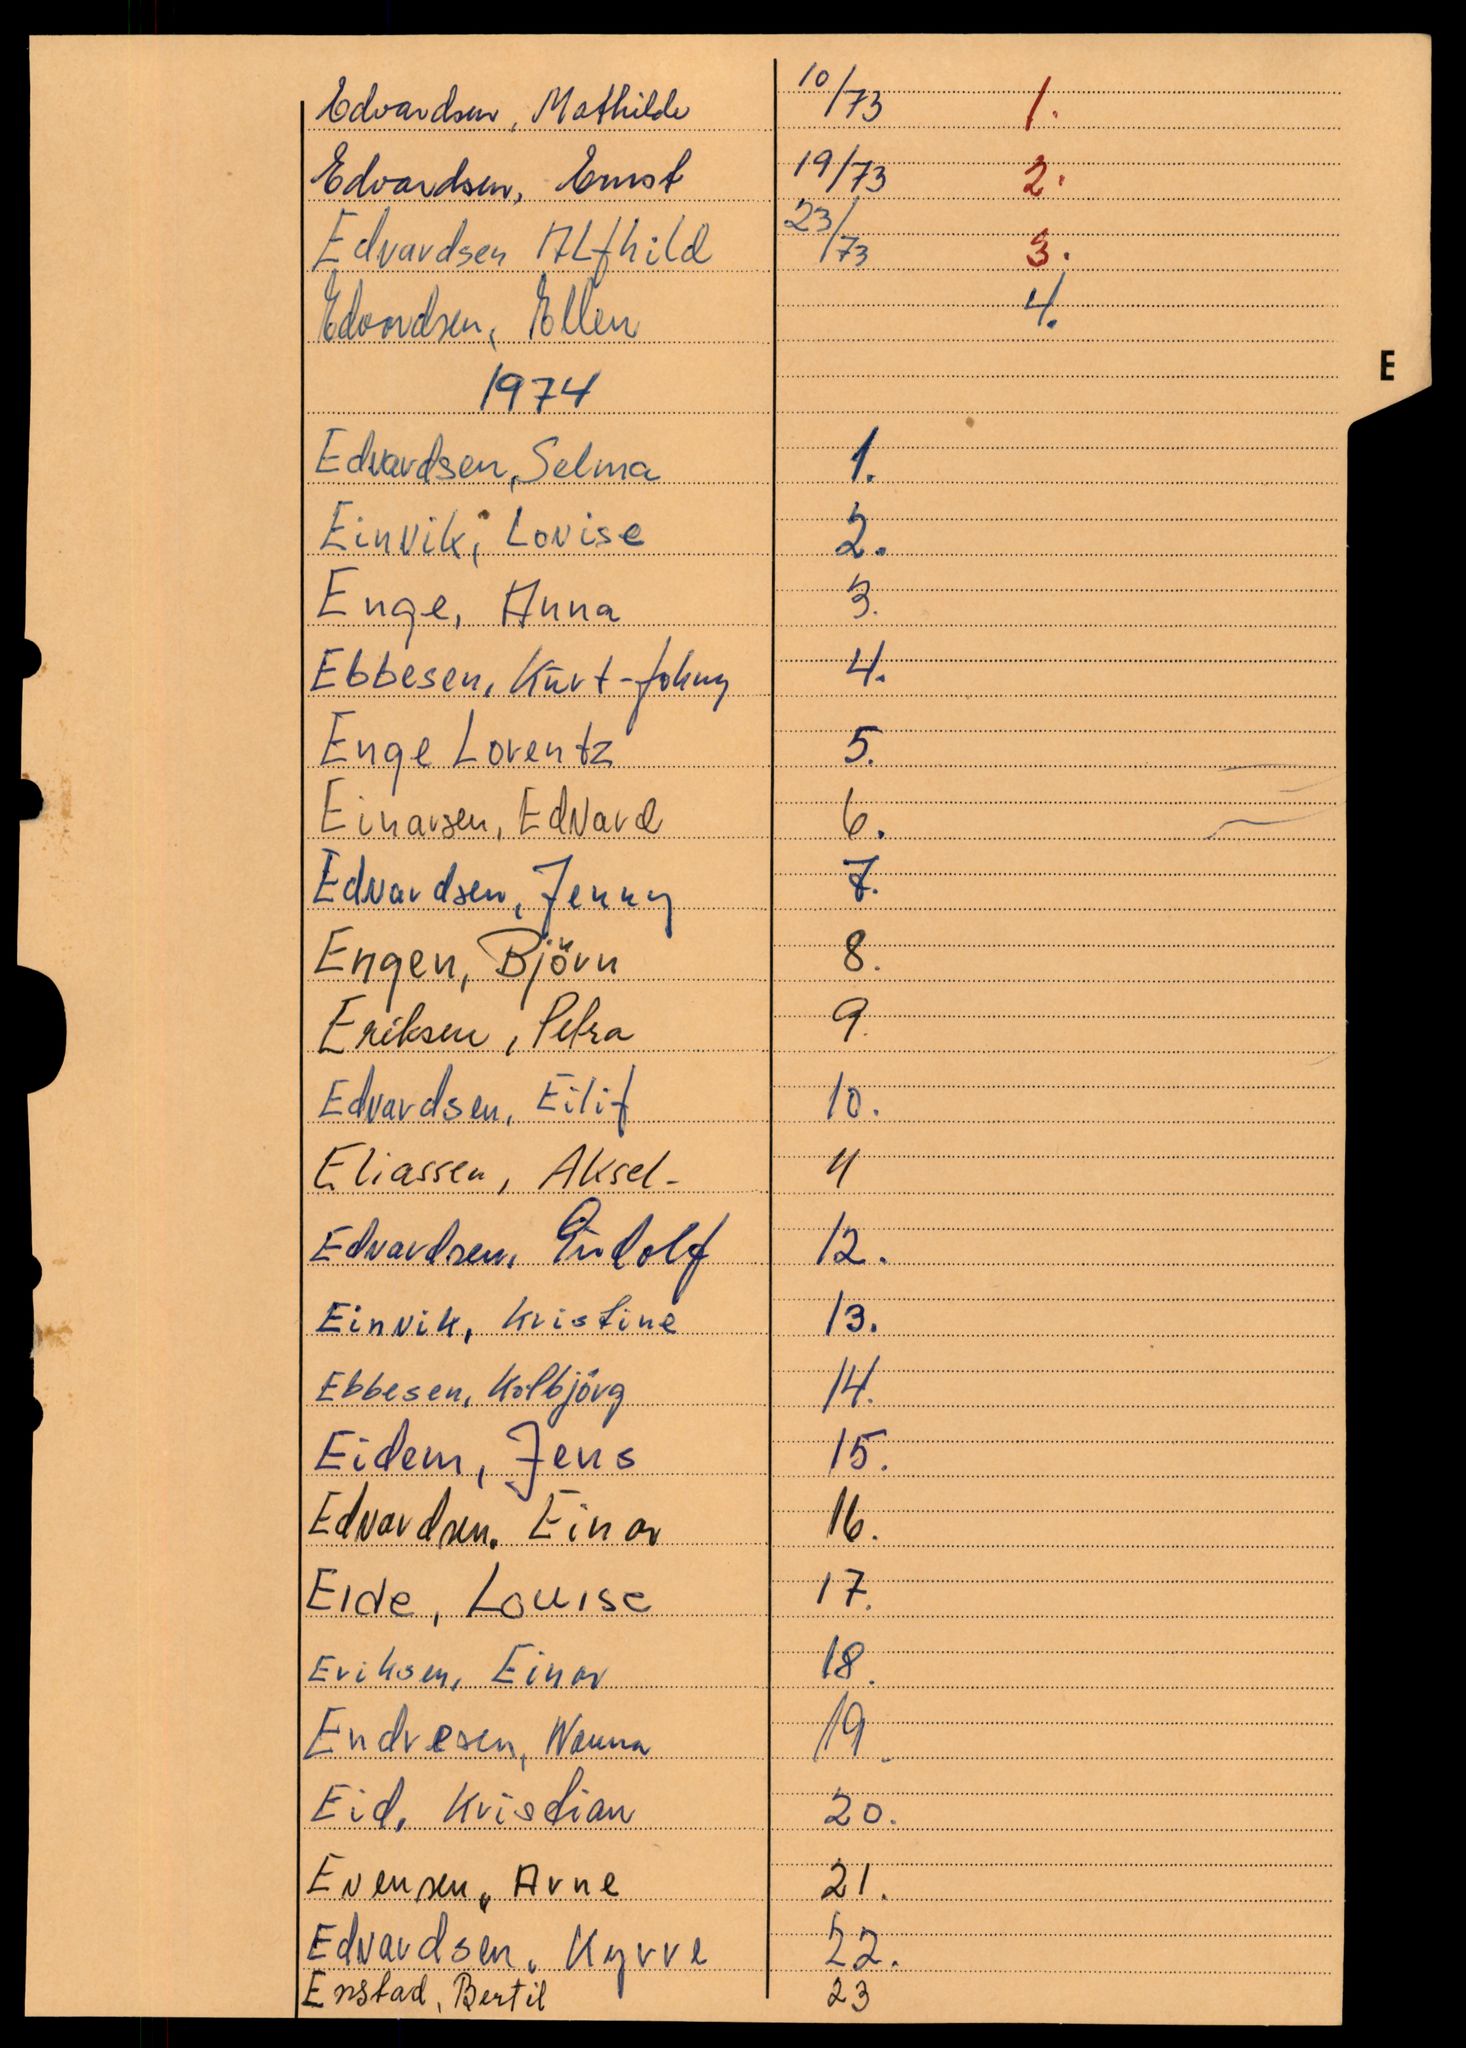 Edvardsen, Mathilde 10/73 1.
Edvardsen, Ernst 19/73 2.
Edvardsen Alfhild 23/73 3.
Edvardsen, Ellen 4.
E
1974
Edvardsen, Selma 1.
Einvik, Lovise 2.
Enge, Anna 3.
Ebbesen, Kurt-Johny 4.
Enge Lorentz 5.
Einarsen, Edvard 6.
Edvardsen, Jenny 7.
Engen, Björn 8.
Eriksen, Petra 9.
Edvardsen, Eilif 10.
Eliassen, Aksel- 11
Edvardsen, 12.
Einvik, Kristine 13.
Ebbesen, Kolbjörg 14.
Eidem, Jens 15.
Edvardsen. Einar 16.
Eide, Louise 17.
Eriksen, Einar 18.
Endresen, Nanna 19.
Eid, Kristian 20.
Evensen, Arne 21.
Edvardsen, Kyrre 22.
Enstad, Bertil 23